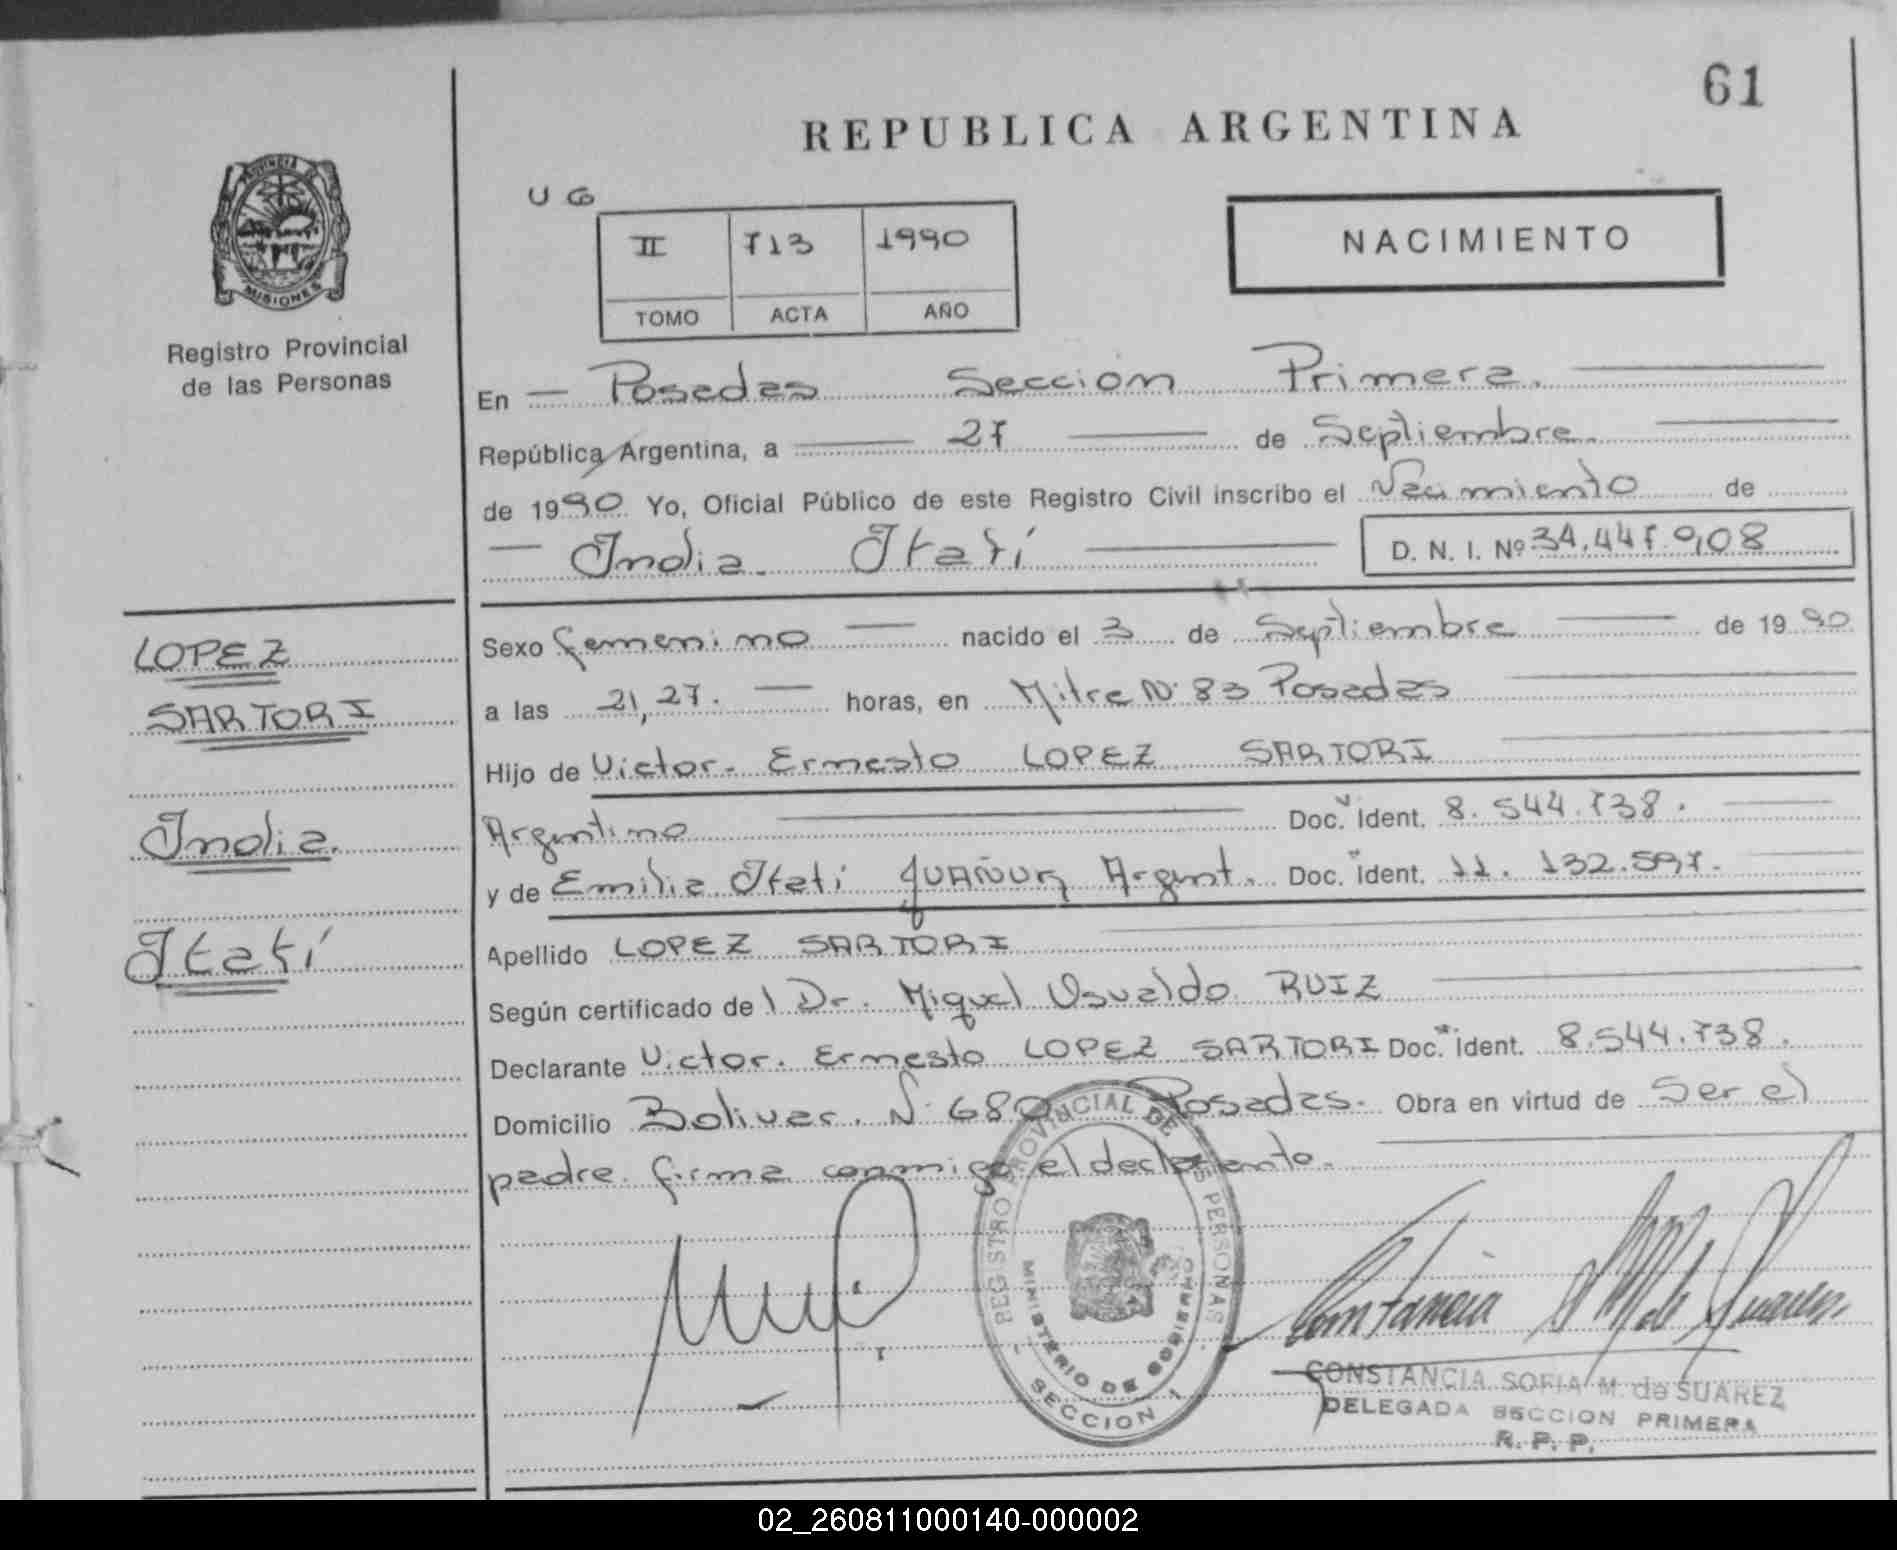 61
REPUBLICA ARGENTINA
U G
II 713 1990
TOMO ACTA AÑO
NACIMIENTO
PROVINCIA DE
MISIONES
Registro Provincial
de las Personas
En Posadas Sección Primera.
República Argentina, a 27 de Septiembre.
de 1990 Yo, Oficial Público de este Registro Civil inscribo el Nacimiento de
India Itatí D. N. I. Nº 34.447.908
LOPEZ
SARTORI
India.
Itatí
Sexo femenino nacido el 3 de Septiembre de 1990
a las 21,27. horas, en Mitre Nº 83 Posadas
Hijo de Victor. Ernesto LOPEZ SARTORI
Argentino Doc. Ident. 8.544.738.
y de Emilia Itati Argent. Doc. Ident. 11.132.597.
Apellido LOPEZ SARTORI
Según certificado del Dr. Miguel Osvaldo RUIZ
Declarante Victor. Ernesto LOPEZ SARTORI Doc. Ident. 8.544.738.
Domicilio Bolivar. Nº 680 Posadas. Obra en virtud de Ser el
padre. firma conmigo el declarante.
REGISTRO PROVINCIAL DE LAS PERSONAS
MINISTERIO DE GOBIERNO
SECCION 1
Constancia S M de Suarez
CONSTANCIA SOFIA M. de SUAREZ
DELEGADA SECCION PRIMERA
R. P. P.
02_260811000140-000002